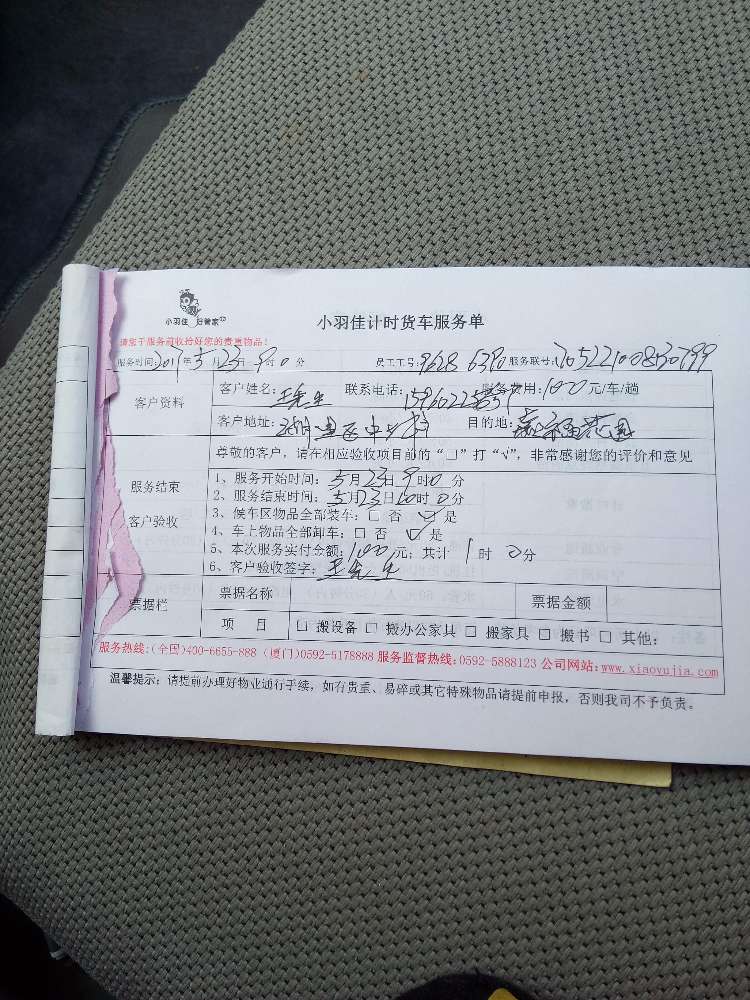 小羽佳 好管家
小羽佳计时货车服务单
请您于服务前收拾好您的贵重物品!
服务时间: 年5月23日9时0分 员工工号:9628 服务联号:
客户资料
客户姓名:王先生 联系电话: 服务费用:100元/车/趟
客户地址:湖里区 目的地:
服务结束
客户验收
尊敬的客户,请在相应验收项目前的“□”打“√”,非常感谢您的评价和意见
1、服务开始时间:5月23日9时0分
2、服务结束时间:5月23日10时0分
3、候车区物品全部装车:□ 否 ☑ 是
4、车上物品全部卸车:□ 否 ☑ 是
5、本次服务实付金额:100元;共计 1时0分
6、客户验收签字:王先生
票据栏
票据名称 票据金额
项 目 □ 搬设备 □ 搬办公家具 □ 搬家具 □ 搬书 □ 其他:
服务热线:(全国)400-6655-888 (厦门)0592-5178888 服务监督热线:0592-5888123 公司网站:www.xiaoyujia.com
温馨提示:请提前办理好物业通行手续,如有贵重、易碎或其它特殊物品请提前申报,否则我司不予负责。